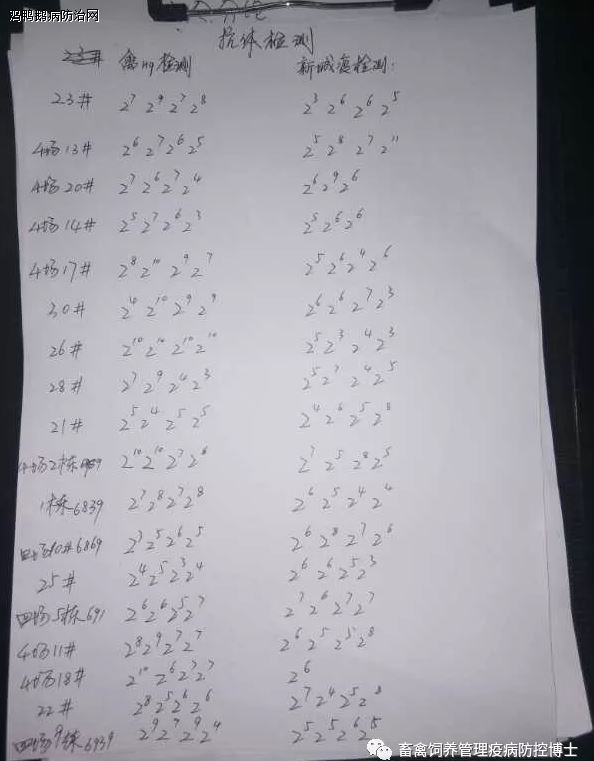 鸡鸭鹅病防治网
抗体检测
禽H9检测 新城疫检测:
23# 2⁷ 2⁹ 2⁷ 2⁸ 2³ 2⁶ 2⁶ 2⁵
4场13# 2⁶ 2⁷ 2⁶ 2⁵ 2⁵ 2⁸ 2⁷ 2¹¹
4场20# 2⁷ 2⁶ 2⁷ 2⁴ 2⁶ 2⁹ 2⁶
4场14# 2⁵ 2⁷ 2⁶ 2³ 2⁵ 2⁶ 2⁶
4场17# 2⁸ 2¹⁰ 2⁹ 2⁷ 2⁵ 2⁶ 2⁴ 2⁶
30# 2⁴ 2¹⁰ 2⁹ 2⁹ 2⁶ 2⁶ 2⁷ 2³
26# 2¹⁰ 2¹⁰ 2¹⁰ 2¹⁰ 2⁵ 2³ 2⁴ 2³
28# 2⁷ 2⁹ 2⁴ 2³ 2⁵ 2⁷ 2⁴ 2⁵
21# 2⁵ 2⁴ 2⁵ 2⁵ 2⁴ 2⁶ 2⁵ 2⁸
4场2栋 2¹⁰ 2¹⁰ 2⁷ 2⁸ 2⁷ 2⁵ 2⁸ 2⁵
1栋6839 2⁷ 2⁸ 2⁷ 2⁸ 2⁶ 2⁵ 2⁴ 2⁴
四场10#6869 2⁷ 2⁵ 2⁶ 2⁵ 2⁶ 2⁸ 2⁷ 2⁶
25# 2⁴ 2⁵ 2³ 2⁴ 2⁶ 2⁶ 2⁵ 2³
四场5栋691 2⁶ 2⁶ 2⁵ 2⁷ 2⁷ 2⁶ 2⁷ 2⁷
4场11# 2⁸ 2⁹ 2⁷ 2⁷ 2⁶ 2⁵ 2⁵ 2⁸
4场18# 2¹⁰ 2⁶ 2⁷ 2⁷ 2⁶
22# 2⁸ 2⁵ 2⁶ 2⁶ 2⁷ 2⁴ 2⁵ 2⁸
四场9栋6939 2⁹ 2⁷ 2⁹ 2⁴ 2⁵ 2⁵ 2⁶ 2⁵
畜禽饲养管理疫病防控博士